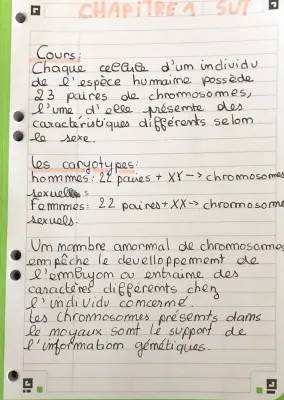 CHAPITRE 1 SVT
Cours:
Chaque cellule d'um individu
de l'espèce humaine possède
23 paires de chromosomes,
l'ume d'elle présemte des
caractéristiques différents selom
le sexe.
Les caryotypes:
hommes: 22 paires + XY -> chromosomes
sexuelles:
Femmes: 22 paires + XX -> chromosomes
sexuels.
Um mombre amormal de chromosomes
empêche le develloppement de
l'embryom ou entraime des
caractères différemts chez
l'individu comcermé.
Les chromosomes présemts dams
le moyaux somt le support de
l'imformatiom gémétiques.